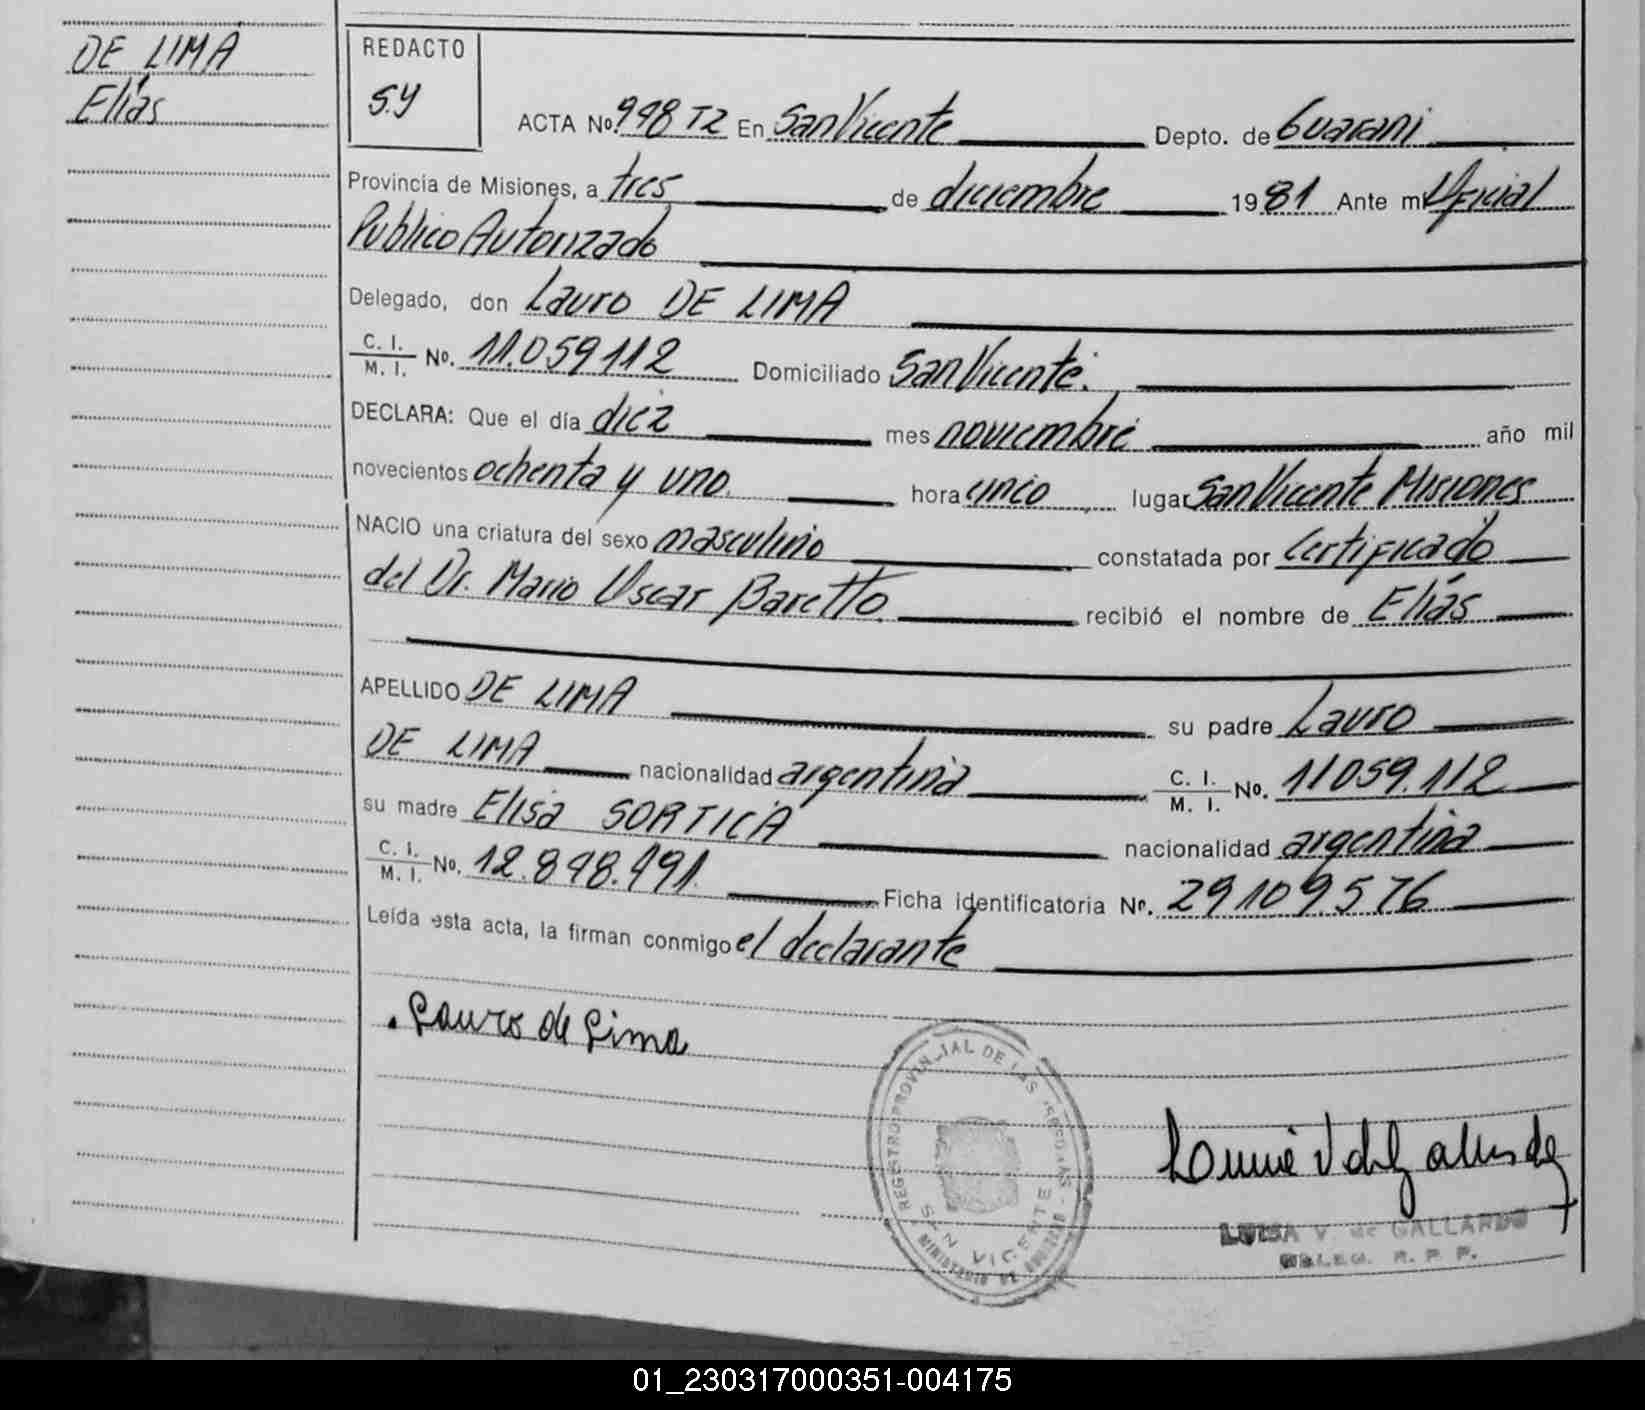 DE LIMA
Elías
REDACTO
S.Y
ACTA No. 998 T2 En San Vicente Depto. de Guarani
Provincia de Misiones, a tres de diciembre 1981 Ante mi Oficial
Publico Autorizado
Delegado, don Lauro DE LIMA
C. I. / M. I. No. 11.059112 Domiciliado San Vicente.
DECLARA: Que el día diez mes noviembre año mil
novecientos ochenta y uno. hora cinco lugar San Vicente Misiones
NACIO una criatura del sexo masculino constatada por Certificado
del Dr. Mario Oscar Baretto. recibió el nombre de Elías
APELLIDO DE LIMA su padre Lauro
DE LIMA nacionalidad argentina C. I. / M. I. No. 11059.112
su madre Elisa SORTICA nacionalidad argentina
C. I. / M. I. No. 12.898.991. Ficha identificatoria No. 29109576
Leída esta acta, la firman conmigo el declarante
Lauro de Lima
REGISTRO PROVINCIAL DE LAS PERSONAS
SAN VICENTE
MINISTERIO DE GOBIERNO
LUISA V. de GALLARDO
DELEG. R. P. P.
01_230317000351-004175